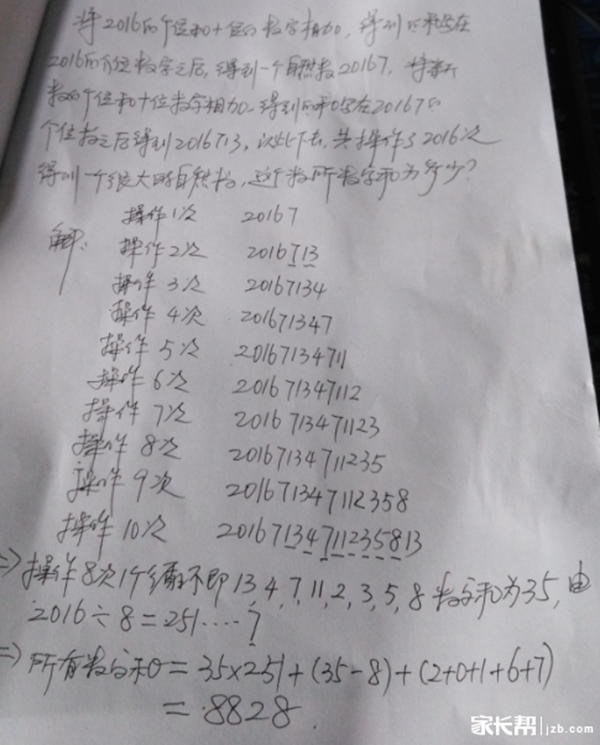 将2016的个位和十位的数字相加,得到的和写在
2016的个位数字之后,得到一个自然数20167,将新
数的个位和十位数字相加,得到的和写在20167的
个位数之后得到2016713,以此下去,共操作了2016次
得到一个很大的自然数,这个数所数字和为多少?
解: 操作1次 20167
操作2次 2016713
操作3次 20167134
操作4次 201671347
操作5次 20167134711
操作6次 201671347112
操作7次 2016713471123
操作8次 20167134711235
操作9次 201671347112358
操作10次 20167134711235813
=> 操作8次1个循环即13,4,7,11,2,3,5,8数字和为35,由
2016÷8=251....7
=> 所有数字和=35×251+(35-8)+(2+0+1+6+7)
=8828.
家长帮 jzb.com